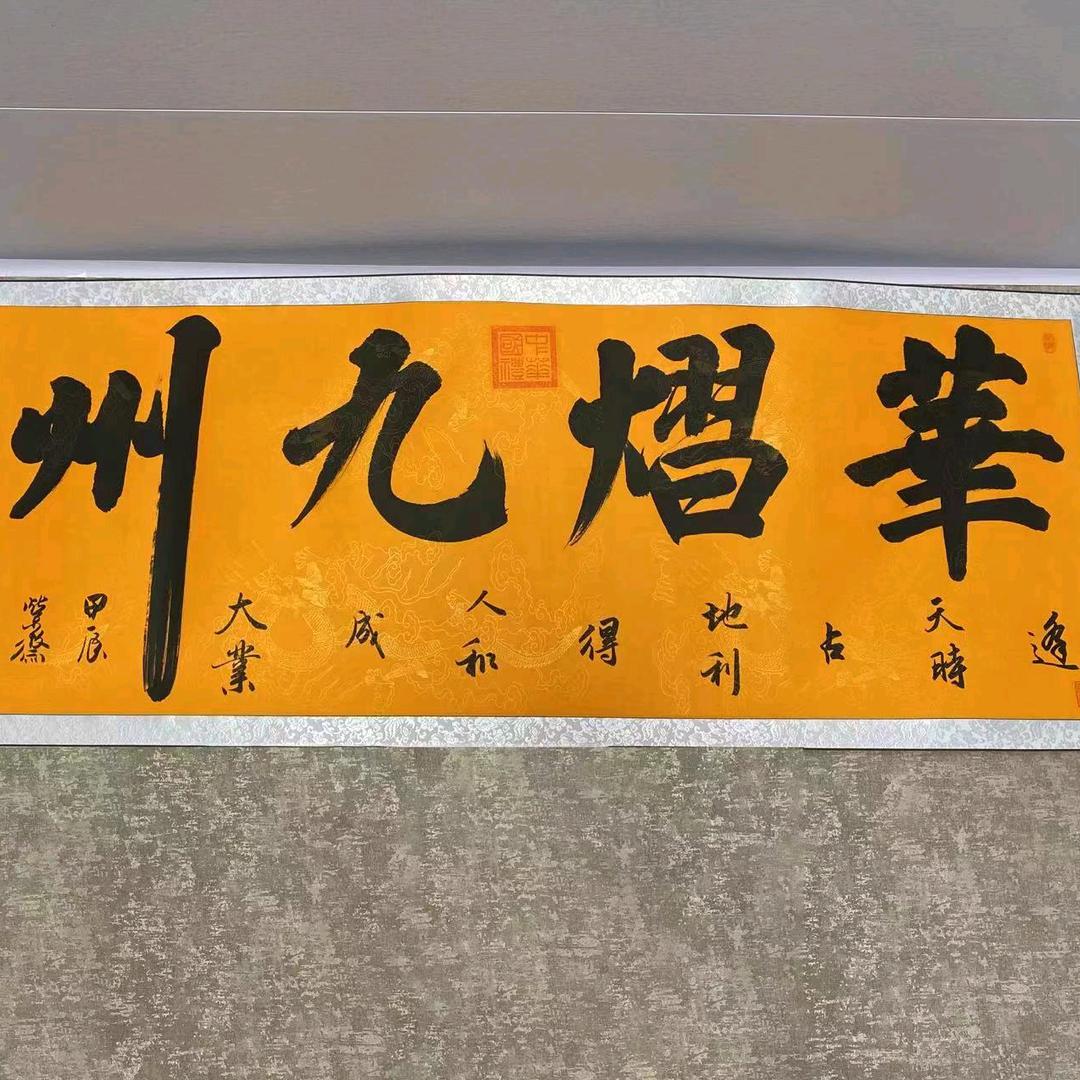 華熠九州
逢天時占地利得人和成大業
甲辰
中華國禮